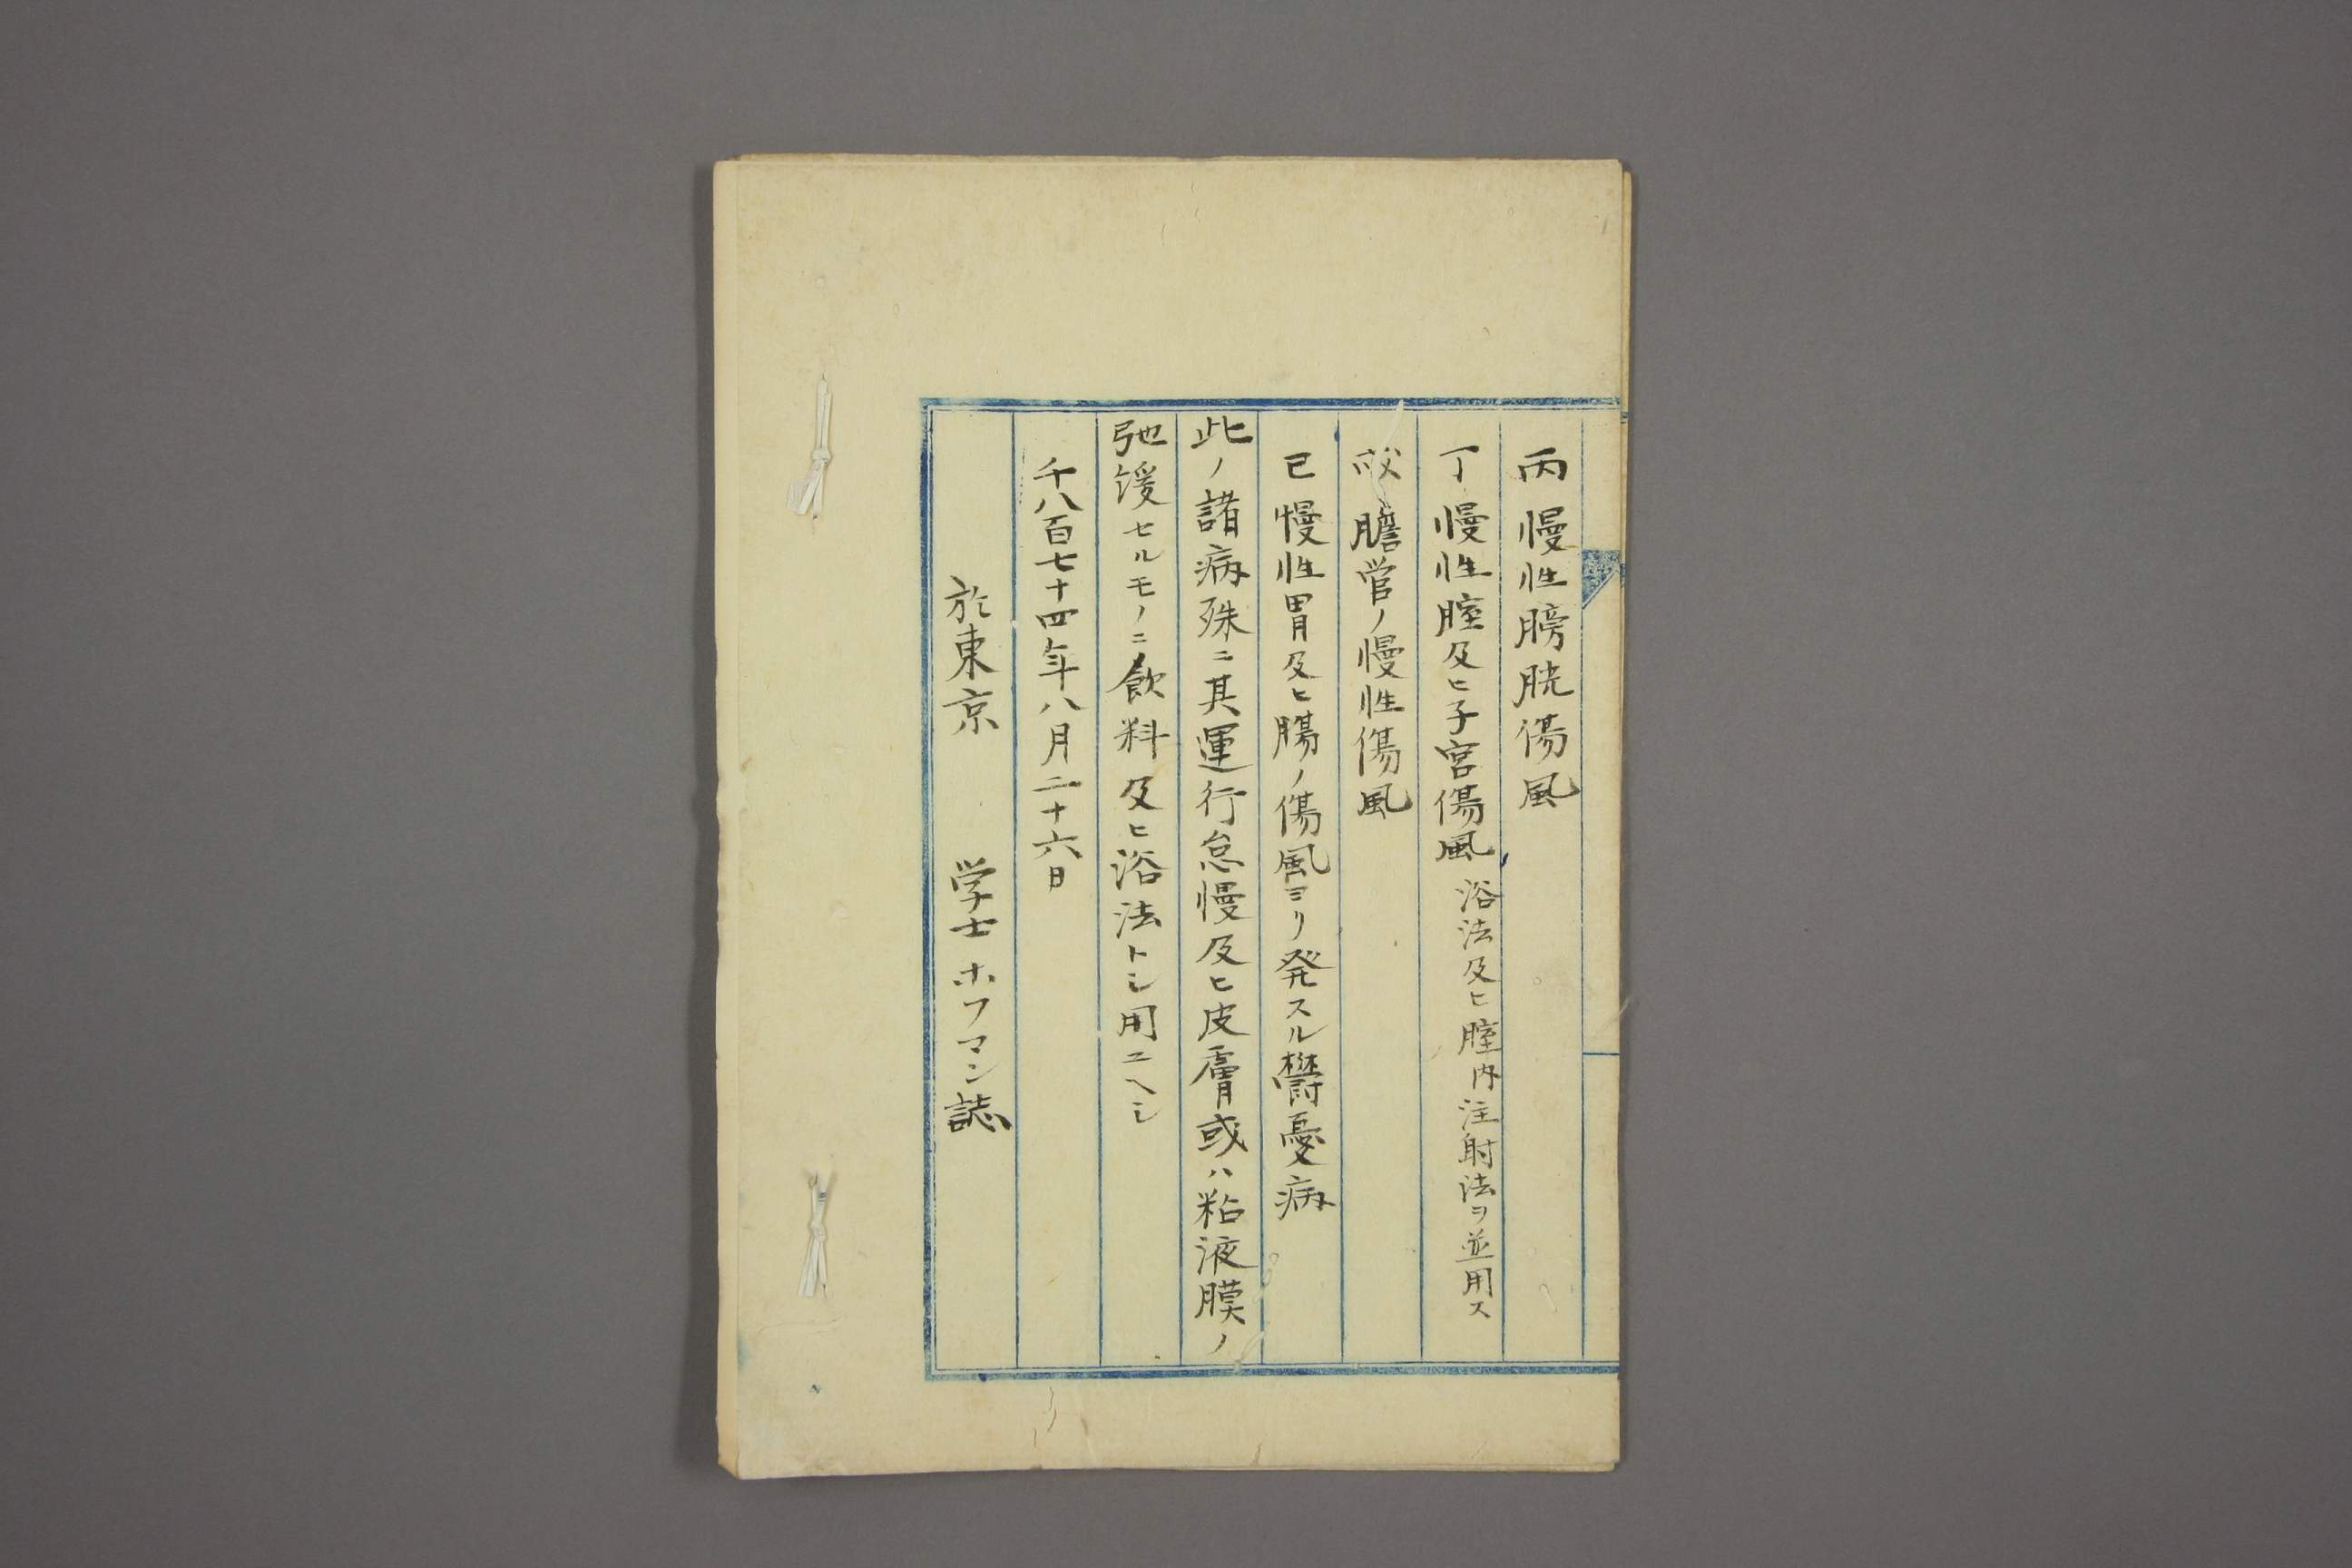 丙 慢性膀胱傷風
丁 慢性腟及ヒ子宮傷風 浴法及ヒ腟内注射法ヲ並用ス
膽管ノ慢性傷風
己 慢性胃及ヒ腸ノ傷風ヨリ発スル欝憂病
此ノ諸病殊ニ其運行怠慢及ヒ皮膚或ハ粘液膜ノ
弛緩セルモノニ飲料及ヒ浴法トシ用ユヘシ
千八百七十四年八月二十六日
於東京 学士ホフマン誌